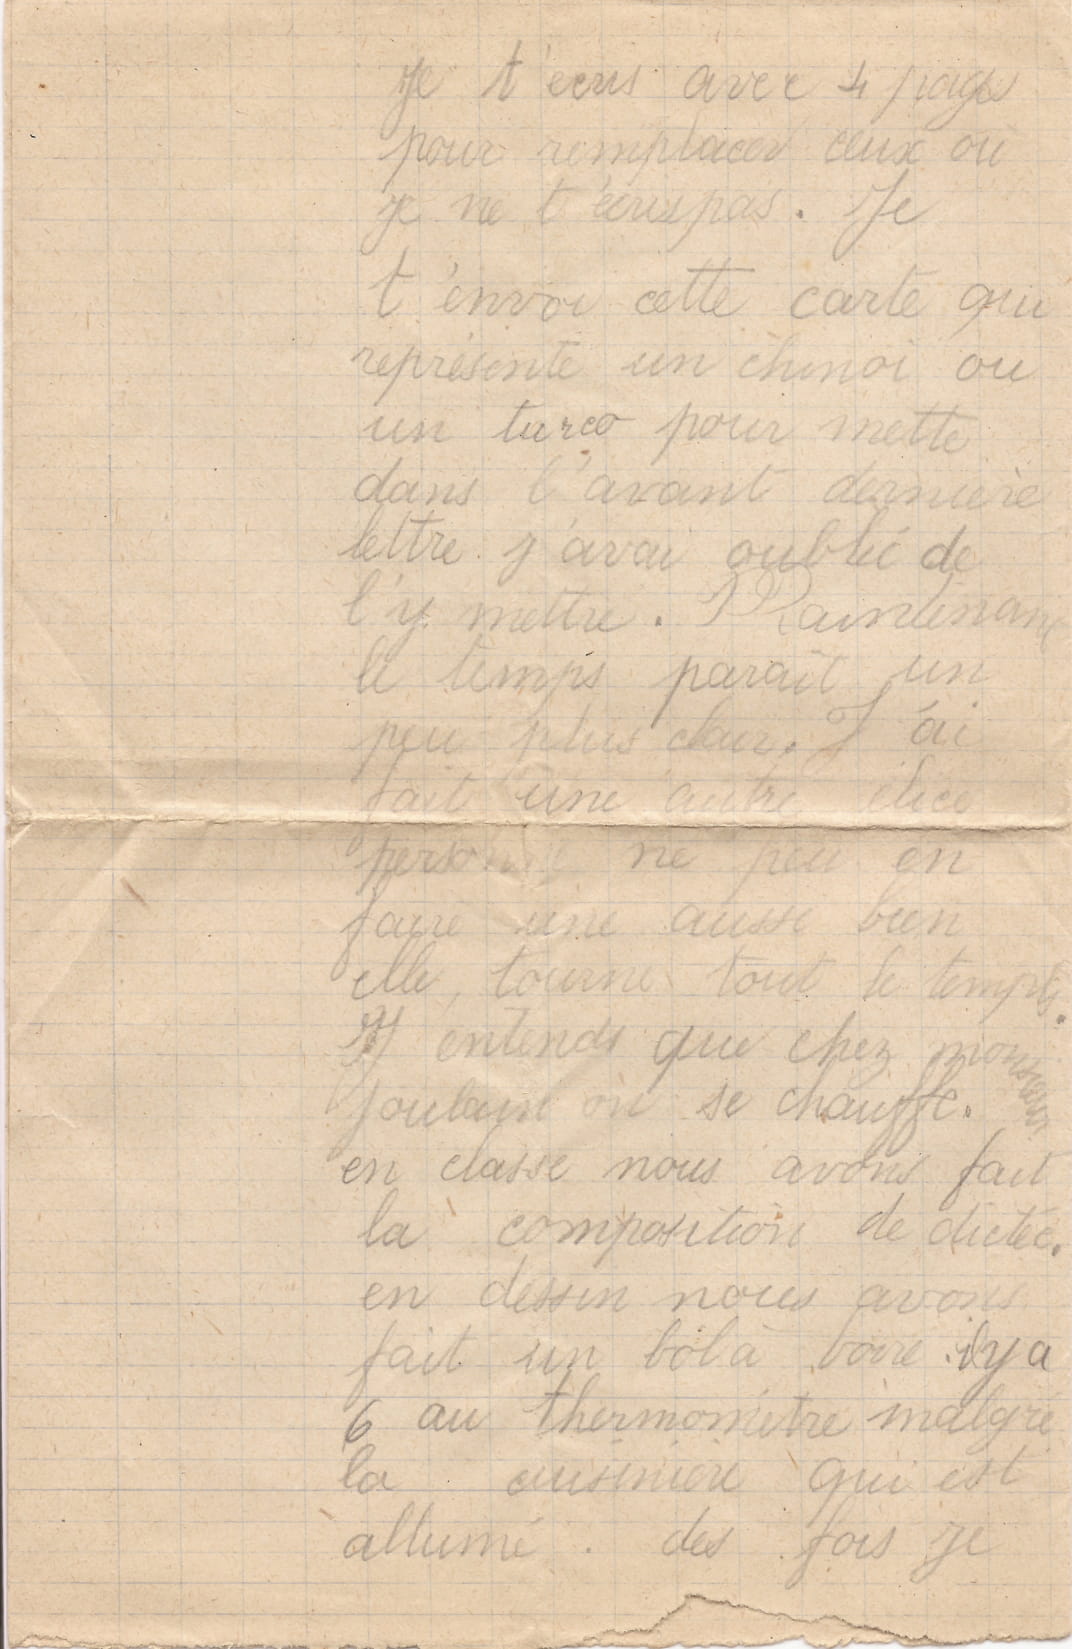 Je t'écris avec 4 pages
pour remplacer ceux où
je ne t'écris pas. Je
t'envoi cette carte qui
représente un chinoi ou
un turco pour mette
dans l'avant dernière
lettre j'avai oublié de
l'y mettre. Maintenant
le temps parait un
peu plus clair. J'ai
fait une autre
personne ne peu en
faire une aussi bien
elle, tourne tout le temps.
J'entends que chez monsieur
on se chauffe.
en classe nous avons fait
la composition de dictée.
en dessin nous avons
fait un bol à boire. il y a
6 au thermomètre malgré
la cuisinière qui est
allumé. des fois je